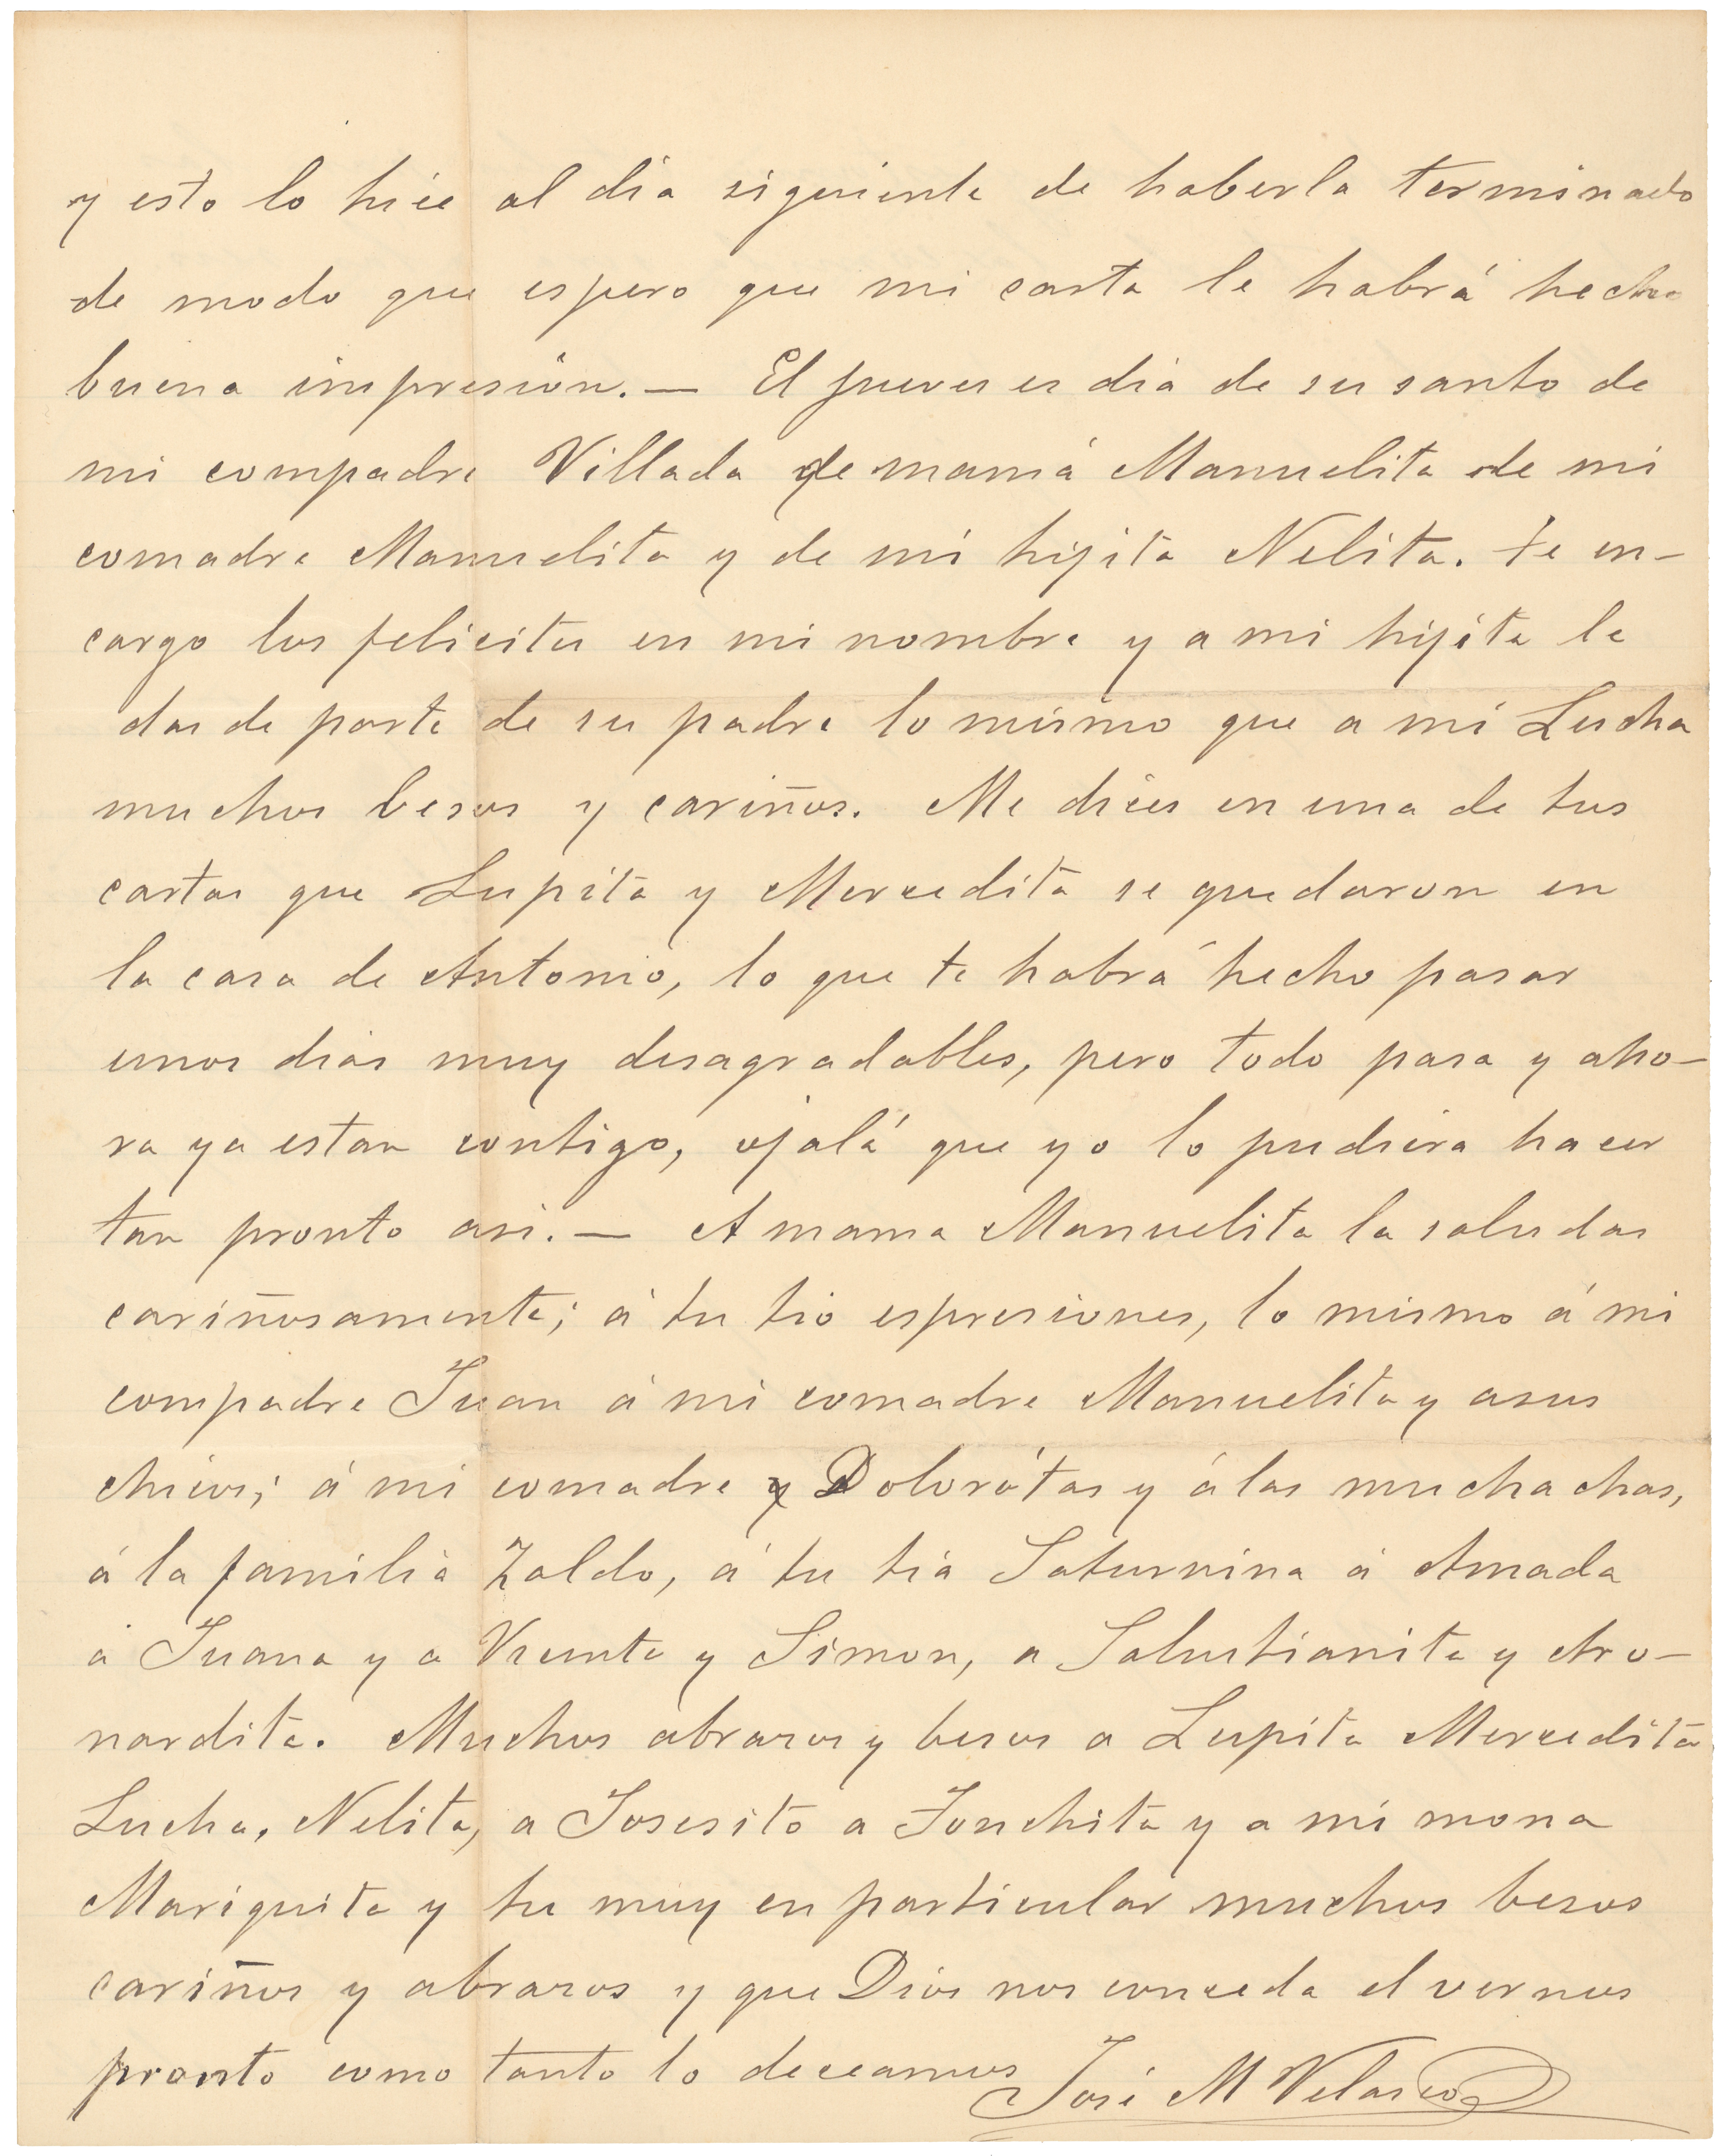 y esto lo hice al dia siguiente de haberla terminado
de modo que espero que mi carta le habrá hecho
buena impresión. — El jueves es dia de su santo de
mi compadre Villada de mamá Manuelita de mi
comadre Manuelita y de mi hijita Nelita. te en-
cargo los felicites en mi nombre y a mi hijita le
das de parte de su padre lo mismo que a mi Lucha
muchos besos y cariños. Me dices en una de tus
cartas que Lupita y Mercedita se quedaron en
la casa de Antonio, lo que te habrá hecho pasar
unos dias muy desagradables, pero todo pasa y aho-
ra ya estan contigo, ojalá que yo lo pudiera hacer
tan pronto asi. — A mama Manuelita la saludas
cariñosamente; á tu tio espresiones, lo mismo á mi
compadre Juan á mi comadre Manuelita y asus
chicos; á mi comadre y Dolorótas y á las muchachas,
á la familia Zaldo, á tu tia Saturnina á Amada
á Juana y a Vicente y Simon, a Salustianita y Aro-
nardita. Muchos abrazos y besos a Lupita Mercedita
Lucha, Nelita, a Josesito a Jonchita y a mi mona
Mariquita y tu muy en particular muchos besos
cariños y abrazos y que Dios nos conceda el vernos
pronto como tanto lo deceamos
José M Velasco